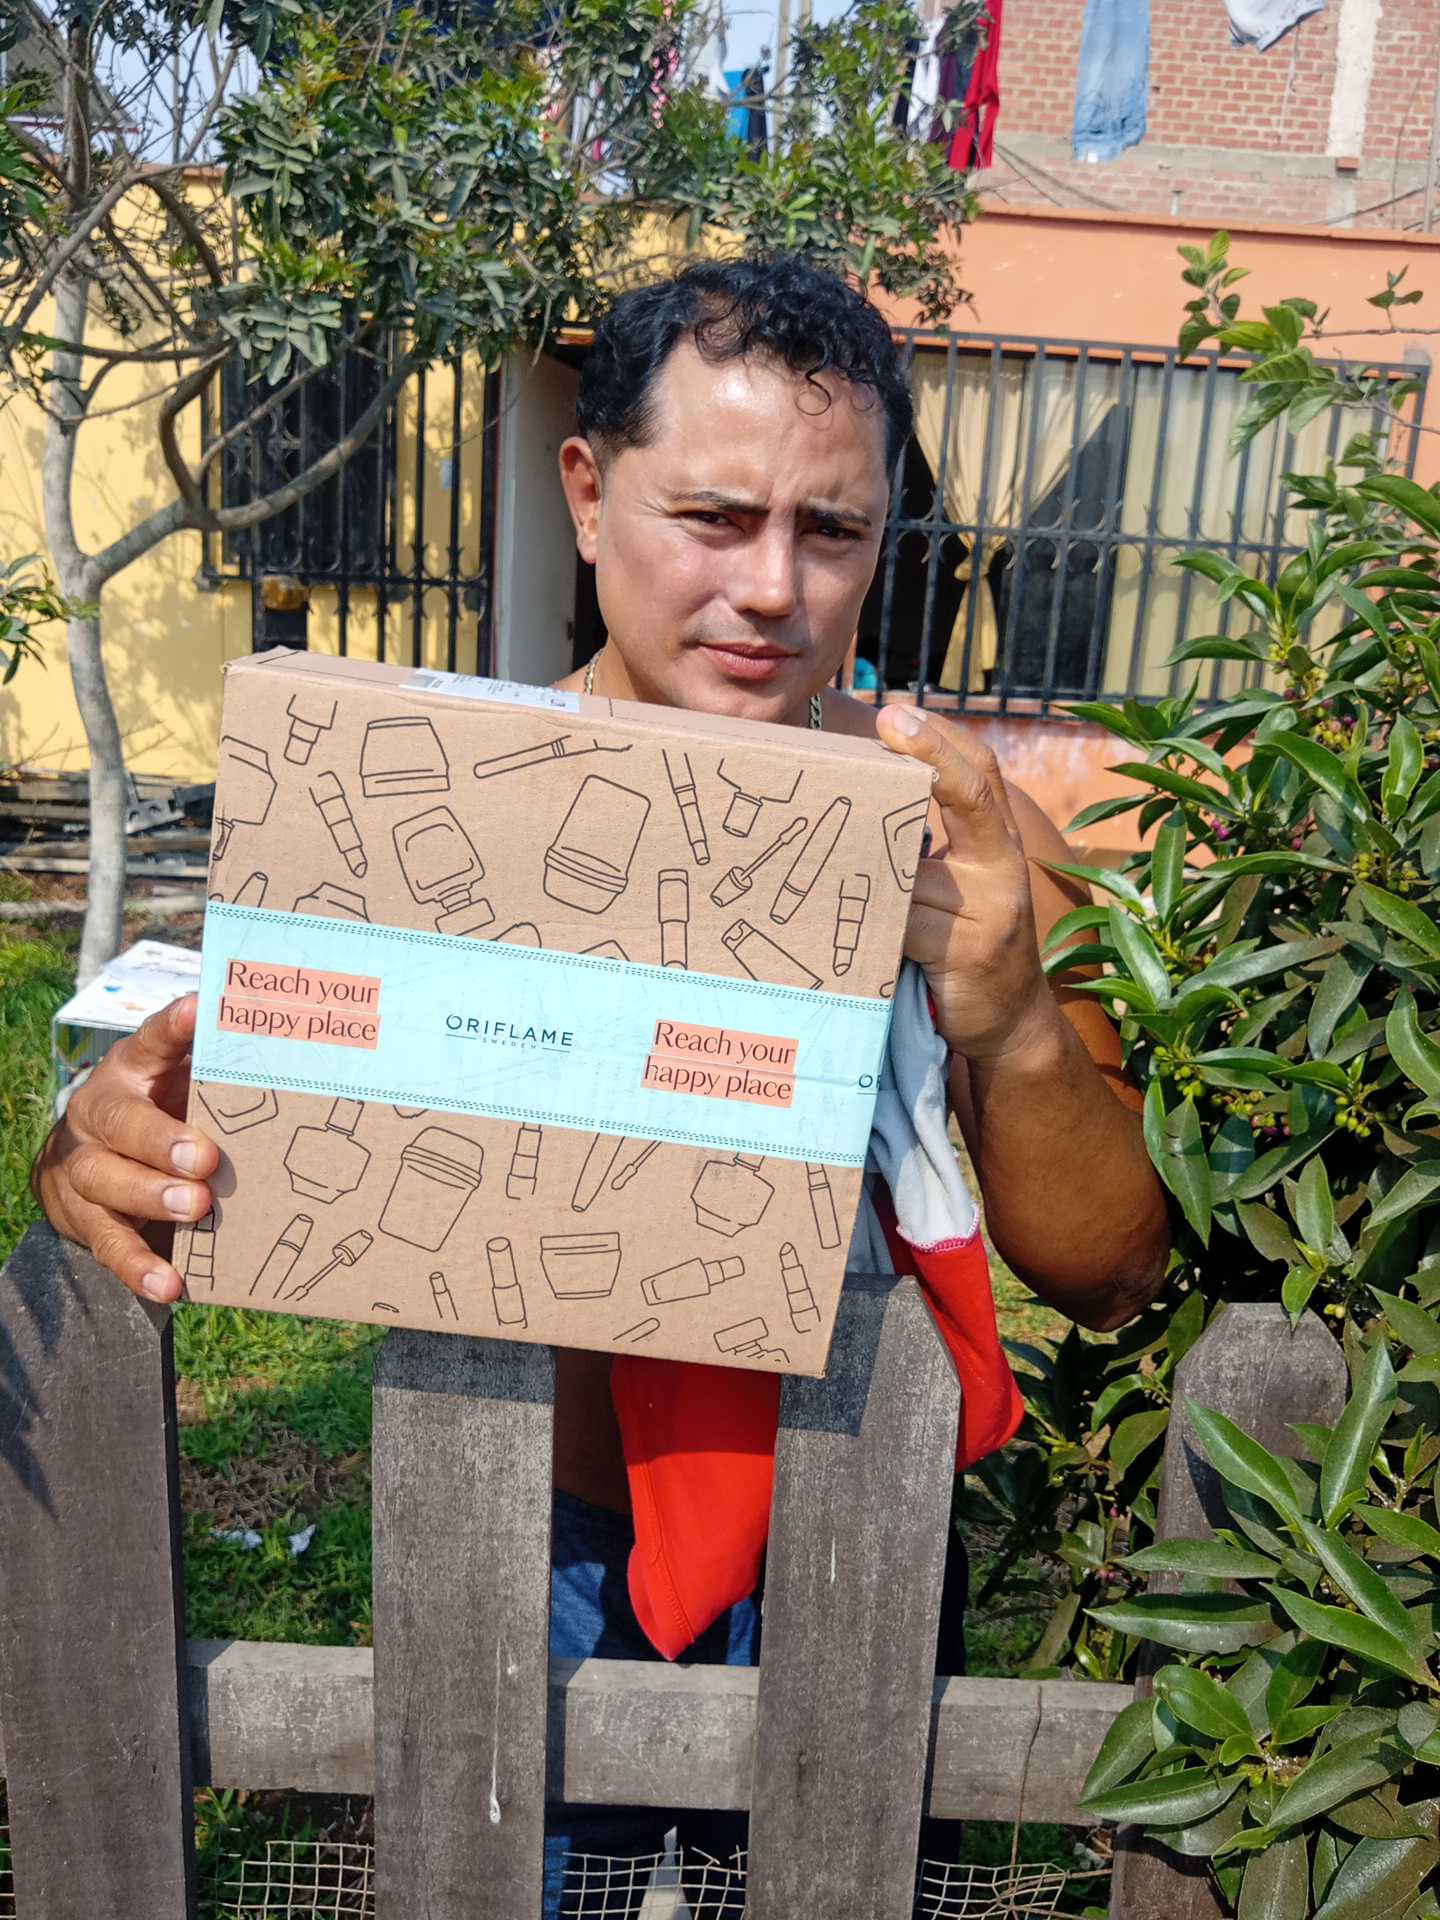 Reach your
happy place
ORIFLAME
SWEDEN
Reach your
happy place